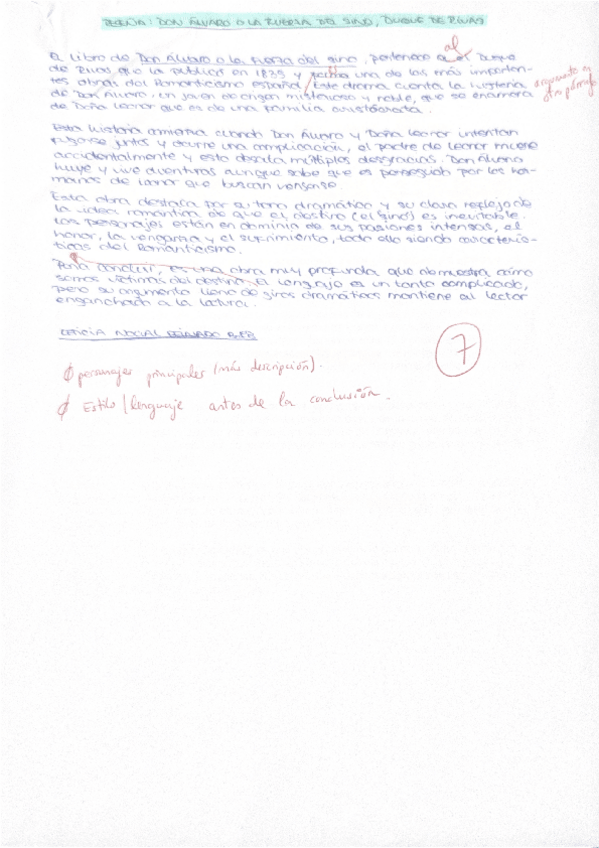 RESEÑA: DON ÁLVARO O LA FUERZA DEL SINO, DUQUE DE RIVAS
al
El libro de Don Álvaro o la fuerza del sino, pertenece a el Duque
de Rivas que la publicó en 1835 y una de las más importan-
tes obras del Romanticismo español. Este drama cuenta la historia argumento en
de Don Álvaro, un joven de origen misterioso y noble, que se enamora otro párrafo
de Doña Leonor que es de una familia aristócrata.
Esta historia comienza cuando Don Álvaro y Doña Leonor intentan
fugarse juntos y ocurre una complicación, el padre de Leonor muere
accidentalmente y esto desata múltiples desgracias. Don Álvaro
huye y vive aventuras aunque sabe que es perseguido por los her-
manos de Leonor que buscan venganza.
Esta obra destaca por su tono dramático y su claro reflejo de
la idea romántica de que el destino (el sino) es inevitable.
Los personajes están en dominio de sus pasiones intensas, el
honor, la venganza y el sufrimiento, todo ello siendo caracterís-
ticas del Romanticismo.
Para concluir, es una obra muy profunda que demuestra cómo
somos víctimas del destino. El lenguaje es un tanto complicado,
pero su argumento lleno de giros dramáticos mantiene al lector
enganchado a la lectura.
7
personajes principales (más descripción).
Estilo/lenguaje antes de la conclusión.